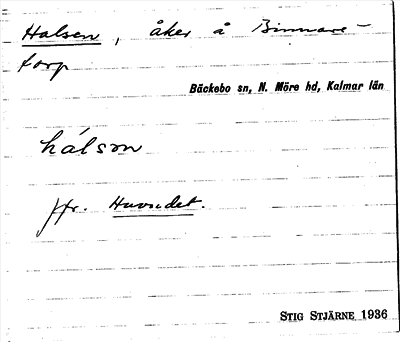 Halsen, åker å Binnare-
torp
Bäckebo sn, N. Möre hd, Kalmar län
hálsɷn
Jfr. Huvudet.
STIG STJÄRNE 1936